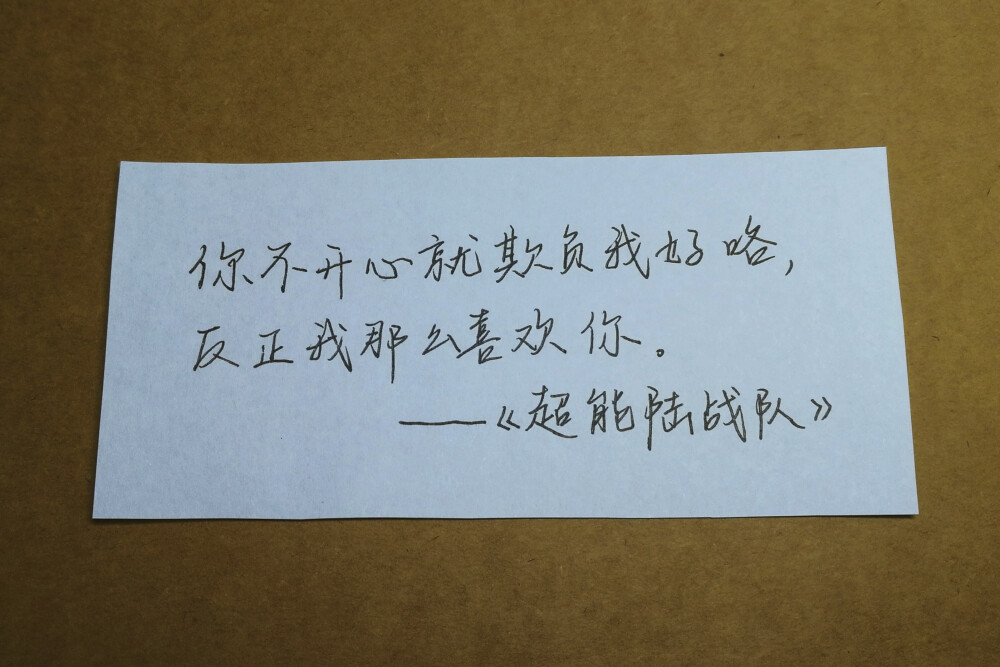 你不开心就欺负我好咯，
反正我那么喜欢你。
——《超能陆战队》